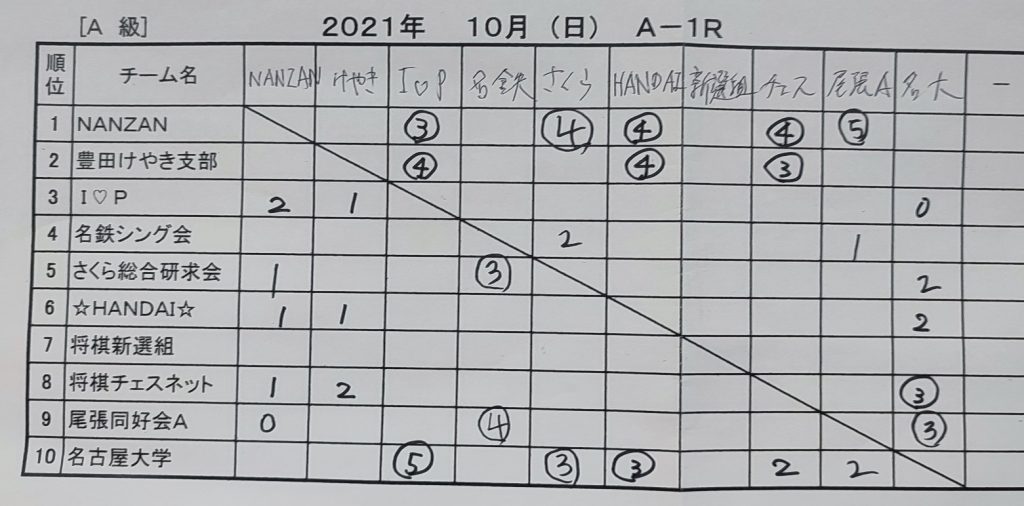 [A 級] 2021年 10月 (日) A－1R
順位 チーム名 NANZAN けやき I♡P 名鉄 さくら HANDAI 新選組 チェス 尾張A 名大 －
1 NANZAN ③ ④ ④ ④ ⑤
2 豊田けやき支部 ④ ④ ③
3 I♡P 2 1 0
4 名鉄シング会 2 1
5 さくら総合研究会 1 ③ 2
6 ☆HANDAI☆ 1 1 2
7 将棋新選組
8 将棋チェスネット 1 2 ③
9 尾張同好会A 0 ④ ③
10 名古屋大学 ⑤ ③ ③ 2 2